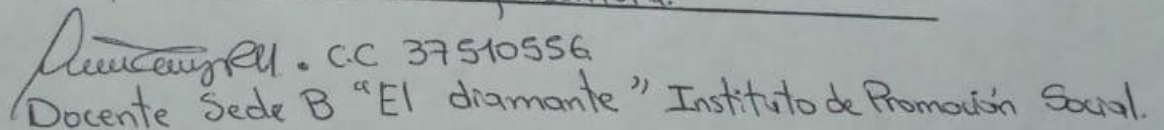 . C.C 37510556
Docente Sede B "El diamante" Instituto de Promoción Social.